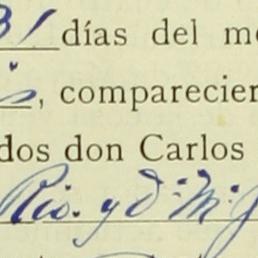 31 días del me
is, comparecier
dos don Carlos
Rio. y d. M. J